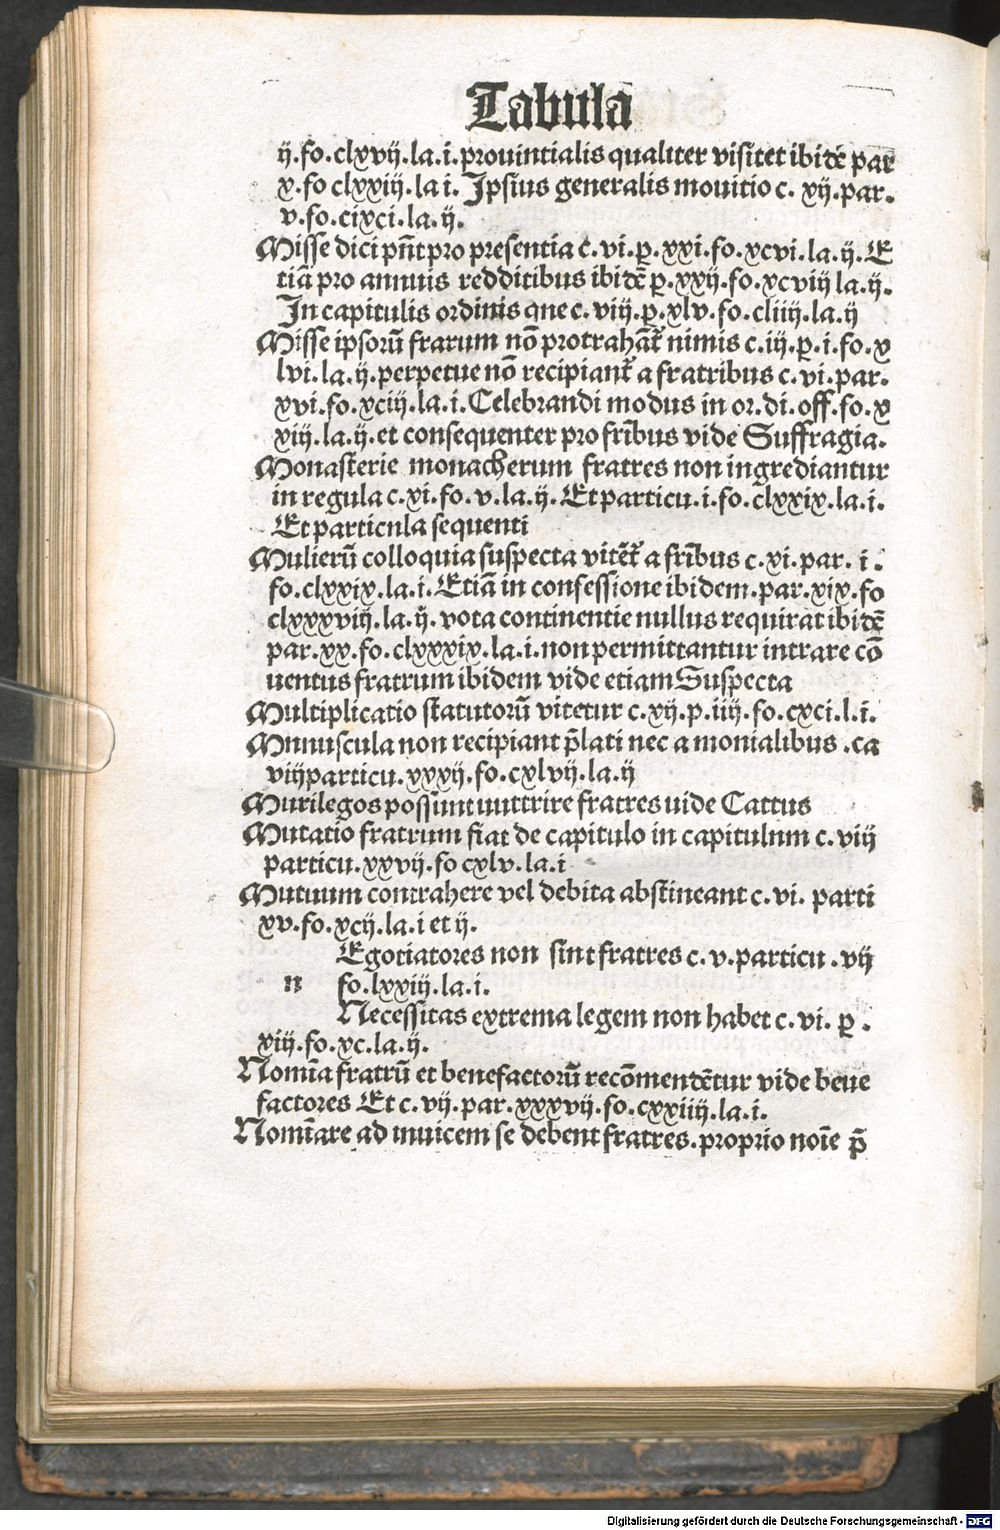 Tabula
ij.fo.clxvij.la.i.prouintialis qualiter visitet ibidē par
x.fo clxxiij.la i. Ipsius generalis mouitio c. xij.par.
v.fo.cixci.la.ij.
Misse dici pn̄t pro presentia c.vi.p̲.xxi.fo.xcvi.la.ij.E
tiā pro annuis redditibus ibidē p̲.xxij.fo.xcviij la.ij.
In capitulis ordinis que c.viij.p̲.xlv.fo.cliiij.la.ij
Misse ipsorū frarum nō protrahāt᷑ nimis c.iij.p̲.i.fo.x
lvi.la.ij.perpetue nō recipiant᷑ a fratribus c.vi.par.
xvi.fo.xciij.la.i.Celebrandi modus in or.di.off.fo.x
xiij.la.ij.et consequenter pro fr̄ibus vide Suffragia.
Monasterie monacherum fratres non ingrediantur
in regula c.xi.fo.v.la.ij.Et particu.i.fo.clxxix.la.i.
Et particula sequenti
Mulierū colloquia suspecta vitēt᷑ a fr̄ibus c.xi.par. i.
fo.clxxix.la.i.Etiā in confessione ibidem.par.xix.fo
clxxxviij.la.ij.vota continentie nullus requirat ibidē
par.xx.fo.clxxxix.la.i.non permittantur intrare cō
uentus fratrum ibidem vide etiam Suspecta
Multiplicatio statutorū vitetur c.xij.p.iiij.fo.cxci.l.i.
Mnnuscula non recipiant p̄lati nec a monialibus .ca
viij particu.xxxij.fo.cxlvij.la.ij
Murilegos possunt nuttrire fratres uide Cattus
Mutatio fratrum fiat de capitulo in capitulnm c.viij
particu.xxvij.fo cxlv.la.i
Mutuum contrahere vel debita abstineant c.vi. parti
xv.fo.xcij.la.i et ij.
Egotiatores non sint fratres c.v.particu.vij
n fo.lxxiij.la.i.
Necessitas extrema legem non habet c.vi. p̲.
xiij.fo.xc.la.ij.
Nomīa fratrū et benefactorū recōmendētur vide bene
factores Et c.vij.par.xxxvij.fo.cxxiiij.la.i.
Nomīare ad inuicem se debent fratres.proprio noīe p̄
Digitalisierung gefördert durch die Deutsche Forschungsgemeinschaft - DFG